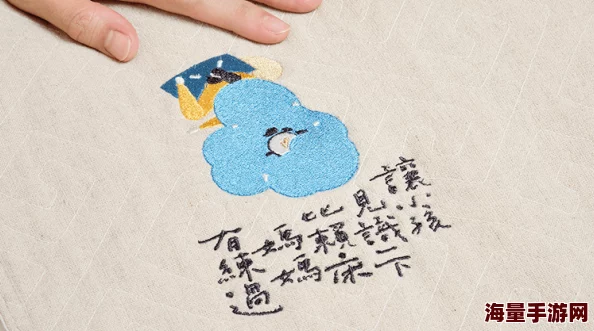 讓小孩
見識一下
比賴床
媽媽
有練過
海量手游网